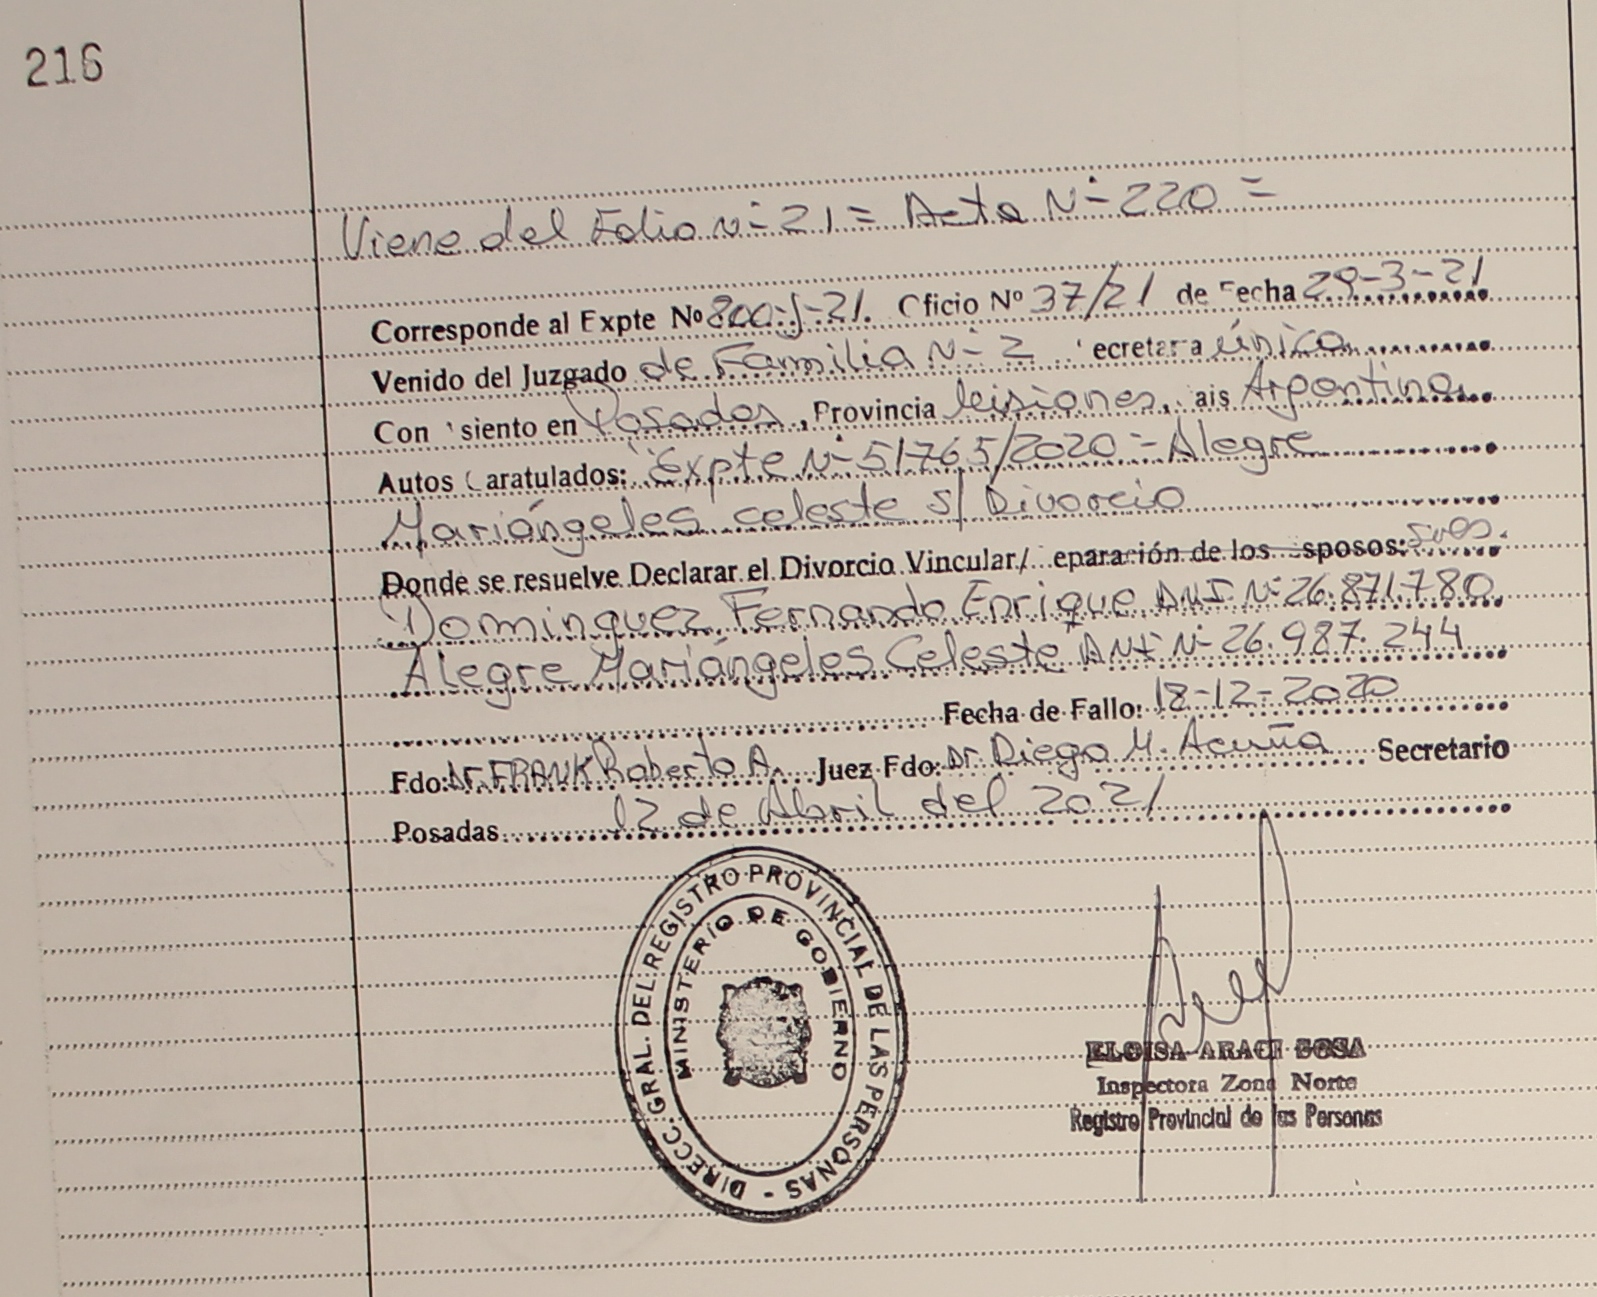 216
Viene del Folio N- 21 = Acta N- 220 =
Corresponde al Expte Nº 800-J-21. Oficio Nº 37/21 de Fecha 29-3-21
Venido del Juzgado de Familia N- 2 ecretar a única
Con siento en Posadas, Provincia Misiones, ais Argentina
Autos Caratulados: "Expte N- 51765/2020 - Alegre
Mariángeles celeste s/ Divorcio
Donde se resuelve Declarar el Divorcio Vincular/ eparación de los sposos:
Dominguez Fernando Enrique DNI N- 26.871.780
Alegre Mariángeles Celeste DNI N- 26.987.244
Fecha de Fallo: 18-12-2020
Fdo: Dr. FRANK Roberto A. Juez Fdo: Dr Diego M. Acuña Secretario
Posadas 12 de Abril del 2021
DIRECC. GRAL. DEL REGISTRO PROVINCIAL DE LAS PERSONAS -
MINISTERIO DE GOBIERNO
ELOISA ARACI SOSA
Inspectora Zona Norte
Registro Provincial de las Personas